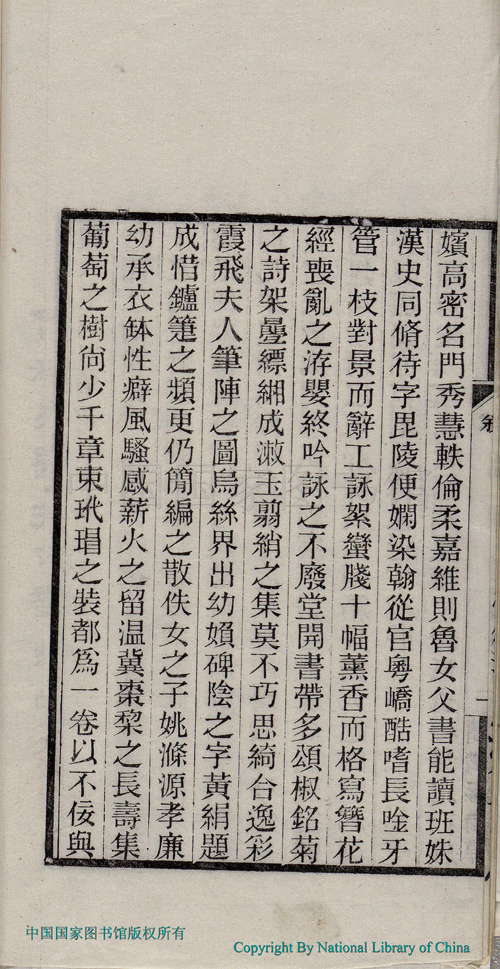 嬪高密名門秀慧軼倫柔嘉維則魯女父書能讀班姝
漢史同脩待字毘陵便嫻染翰從官粵嶠酷嗜長唫牙
管一枝對景而辭工詠絮蠻牋十幅薰香而格寫簪花
經喪亂之洊嬰終吟詠之不廢堂開書帶多頌椒銘菊
之詩架曡縹緗成漱玉翦綃之集莫不巧思綺合逸彩
霞飛夫人筆陣之圖烏絲界出幼嬪碑陰之字黃絹題
成惜鑪箑之頻更仍簡編之散佚女之子姚滌源孝廉
幼承衣缽性癖風騷感薪火之留温冀棗棃之長壽集
葡萄之樹尙少千章束玳瑁之裝都爲一卷以不佞與
一
中国国家图书馆版权所有
Copyright By National Library of China